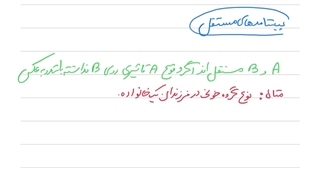 پیشامدهای مستقل
A و B مستقل اند اگر وقوع A تاثیری روی B نداشته باشد و برعکس
مثال: نوع گروه خونی در فرزندان یک خانواده.